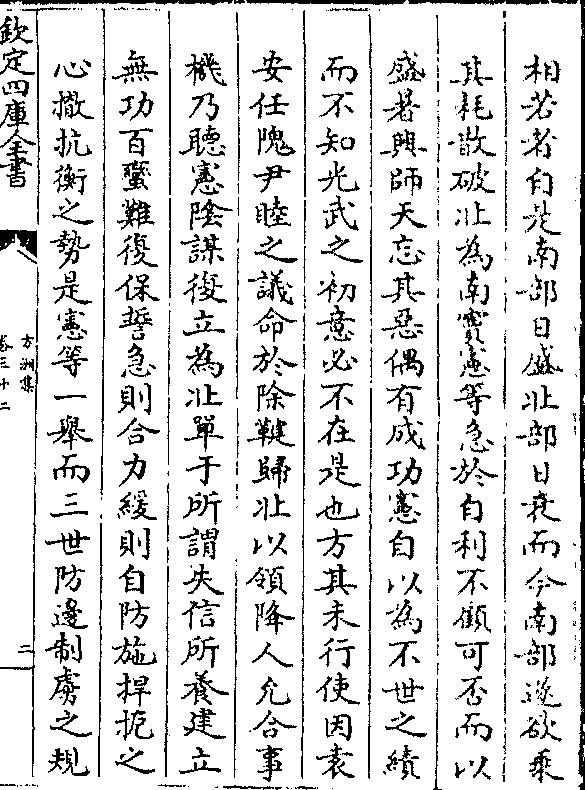 相若者自是南部日盛北部日衰而今南部遂欲乘
其耗散破北為南竇憲等急於自利不顧可否而以
盛暑興師天忘其惡偶有成功憲自以為不世之績
而不知光武之初意必不在是也方其未行使因袁
安任隗尹睦之議命於除鞬歸北以領降人允合事
機乃聽憲陰謀復立為北單于所謂失信所養建立
無功百蠻難復保誓急則合力緩則自防施捍扼之
心撤抗衡之勢是憲等一舉而三世防邊制虜之規
欽定四庫全書
方洲集
卷三十二
二